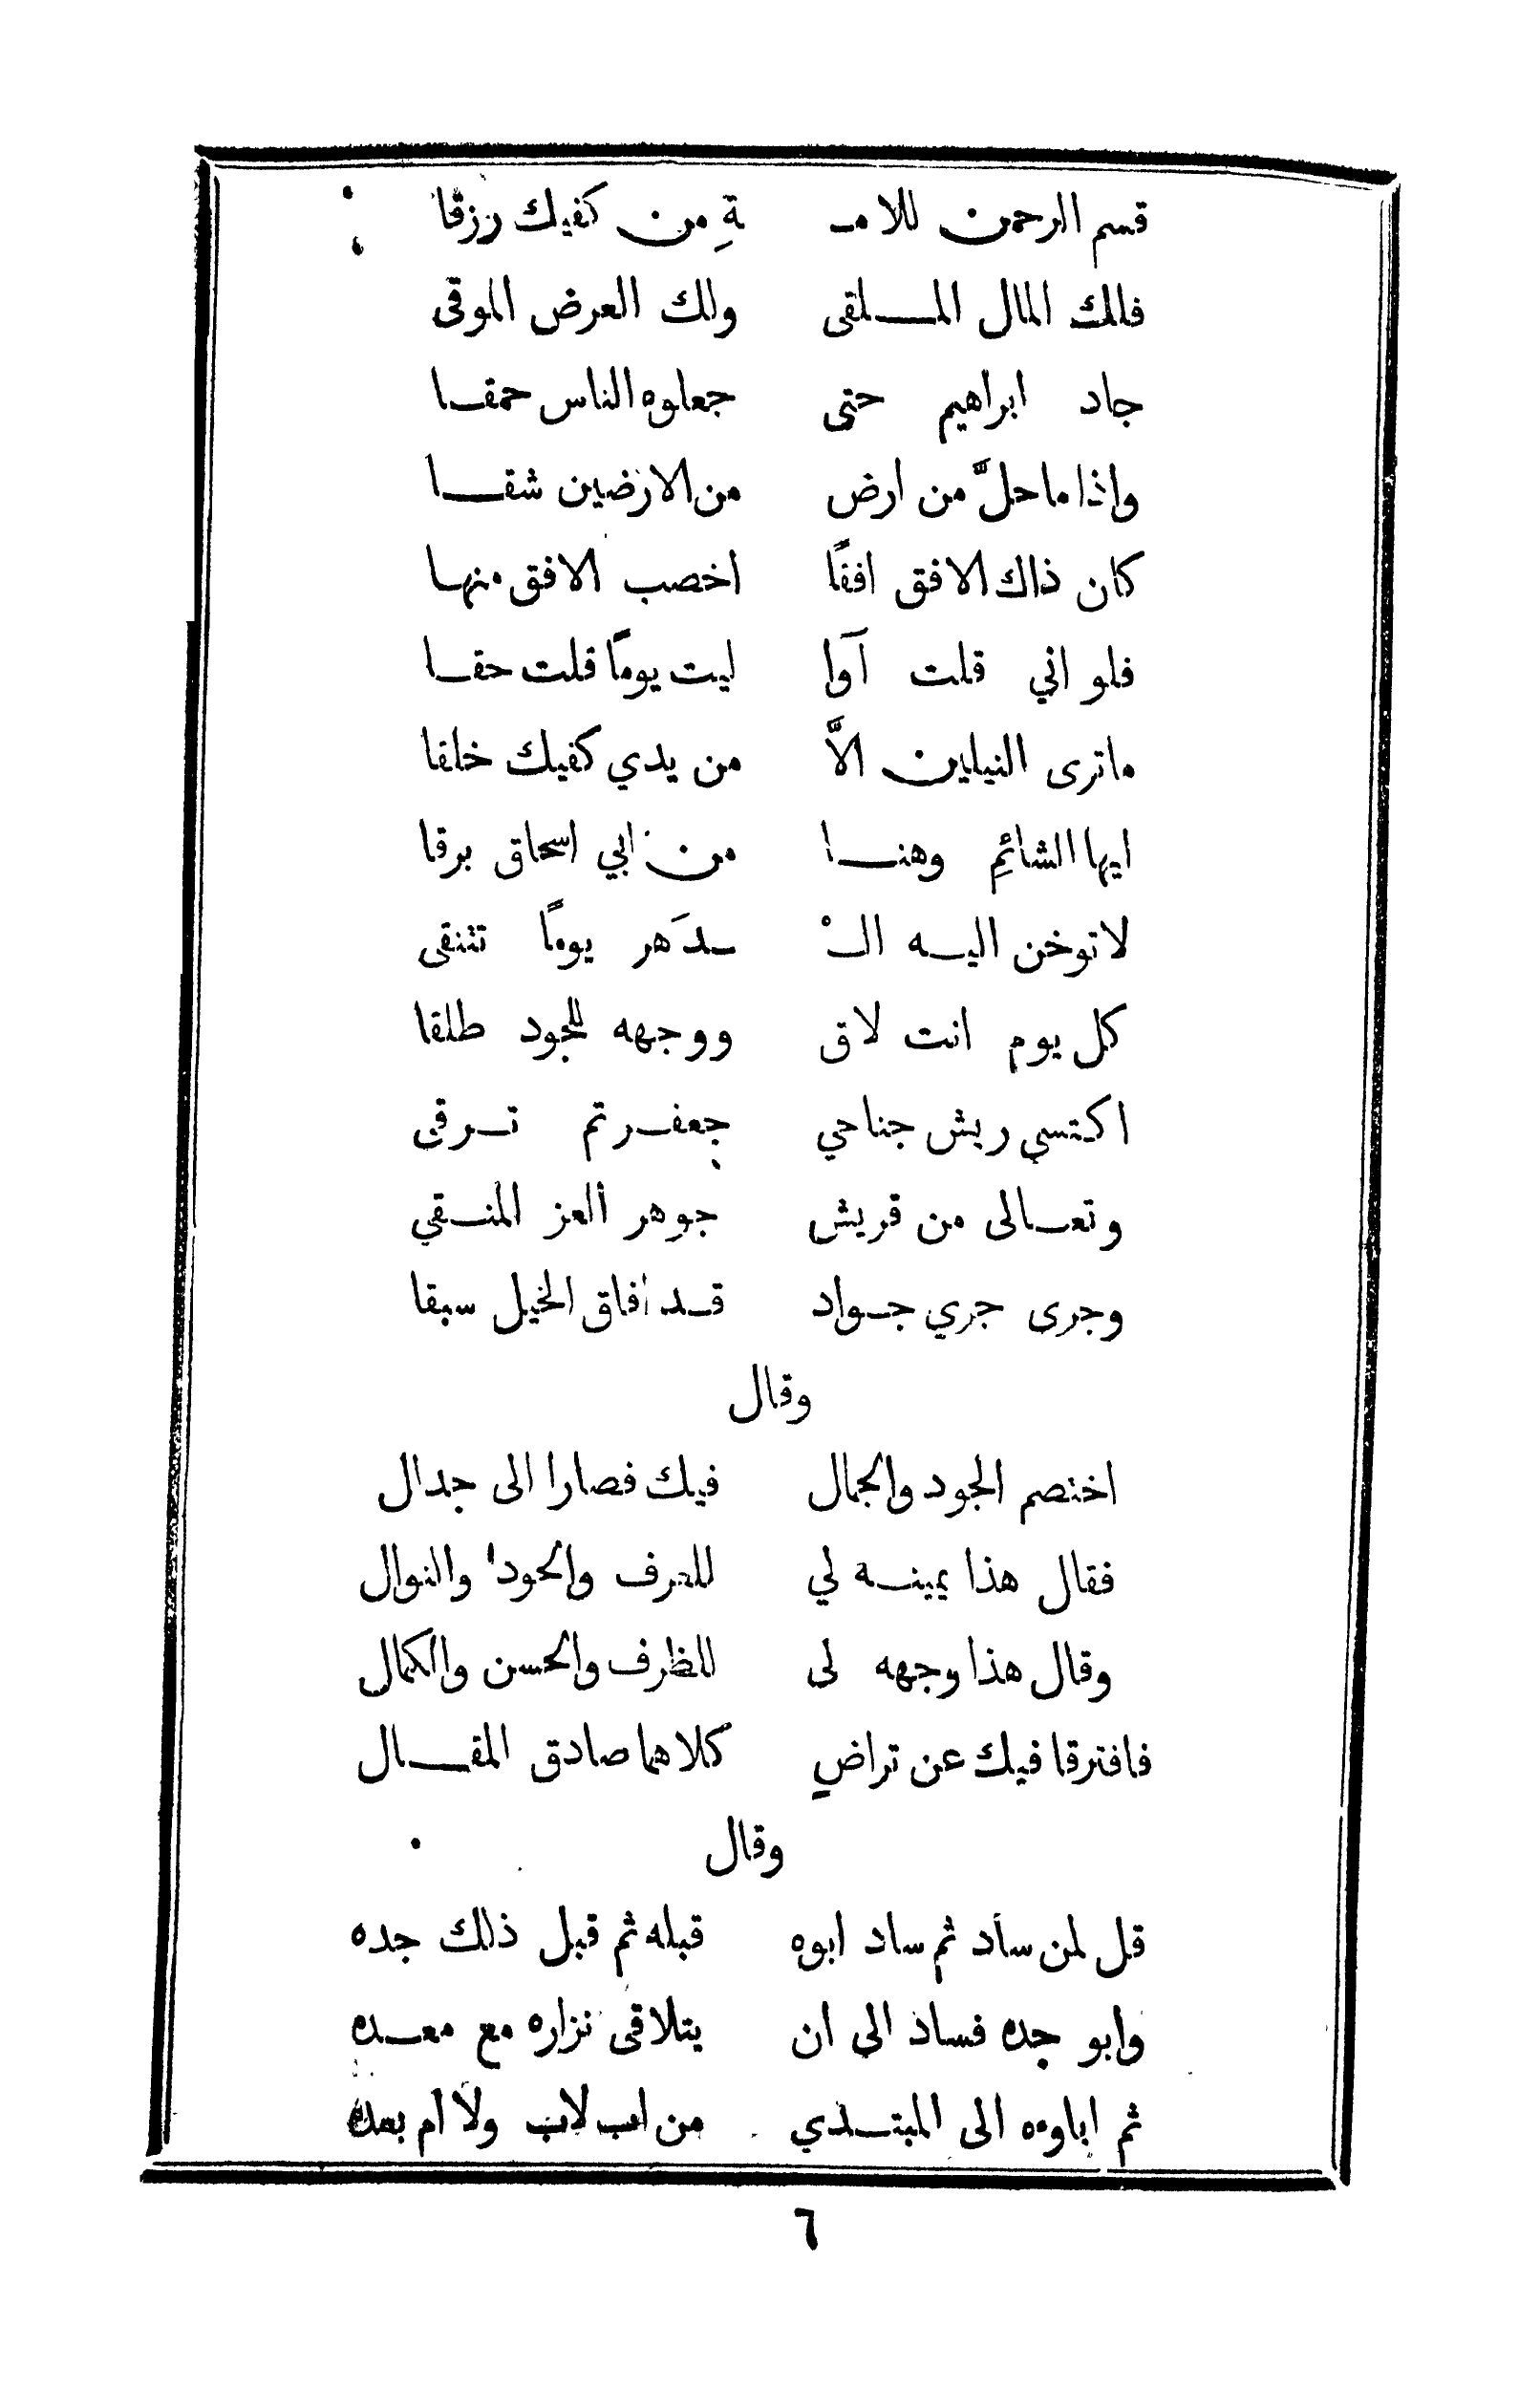 قسم الرحمن للامـ ـةِ من كفيك رزقا
فلك المال الملقى ولك العرض الموقى
جاد ابراهيم حتى جعلوه الناس حمقا
واذا ما حلَّ من ارض من الارضين شقا
كان ذاك الافق افقًا اخصب الافق منها
فلو اني قلت آوا ليت يومًا قلت حقا
ماترى النيلين الاَّ من يدي كفيك خلقا
ايها الشائمِ وهنا من ابي اسحاق برقا
لاتوخن اليه الـْ ـدَهر يومًا تتنقى
كل يوم انت لاق ووجهه للجود طلقا
اكتسي ريش جناحي جعفر تم ترقى
وتعالى من قريش جوهر العز المنقي
وجرى جري جواد قد افاق الخيل سبقا
وقال
اختصم الجود والجمال فيك فصارا الى جدال
فقال هذا يمينه لي للعرف والجود والنوال
وقال هذا وجهه لى للظرف والحسن والكمال
فافترقا فيك عن تراضٍ كلاهما صادق المقال
وقال
قل لمن ساد ثم ساد ابوه قبله ثم قبل ذلك جده
وابو جده فساد الى ان يتلاقى نزاره مع معده
ثم اباوءه الى المبتدي من اب لاب ولا ام بعده
٦